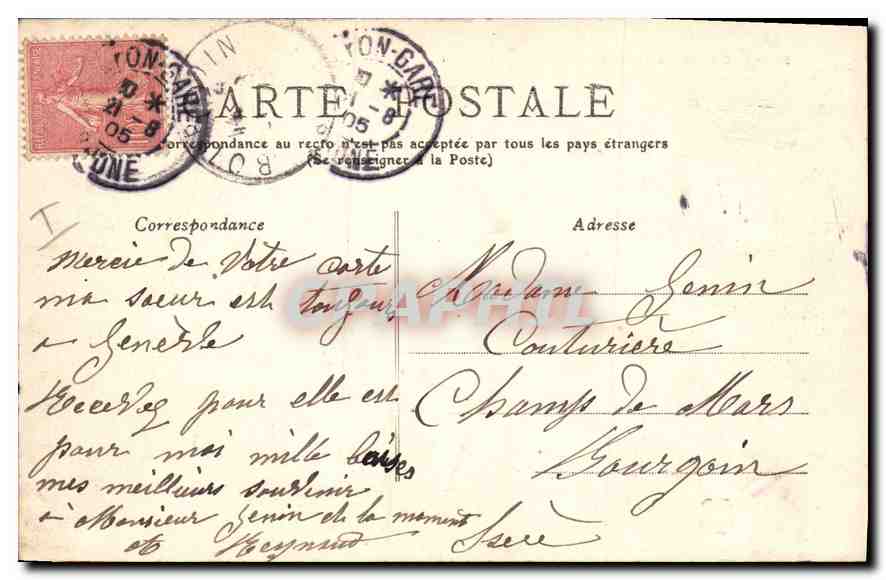 LYON-GARE
10 *
21 -8
05
RHONE
LYON-GARE
10 *
21 -8
05
RHONE
CARTE POSTALE
Correspondance au recto n'est pas acceptée par tous les pays étrangers
(Se renseigner à la Poste)
Correspondance
Adresse
Mercie de Votre carte
ma soeur est toujours
a Genève
Recevez pour elle est
pour moi mille baises
mes meilleurs souvenir
à Monsieur Genin de la moment
Reynaud
Madame Genin
Couturière
Champ de Mars
Bourgoin
Isère
CPAPHIL